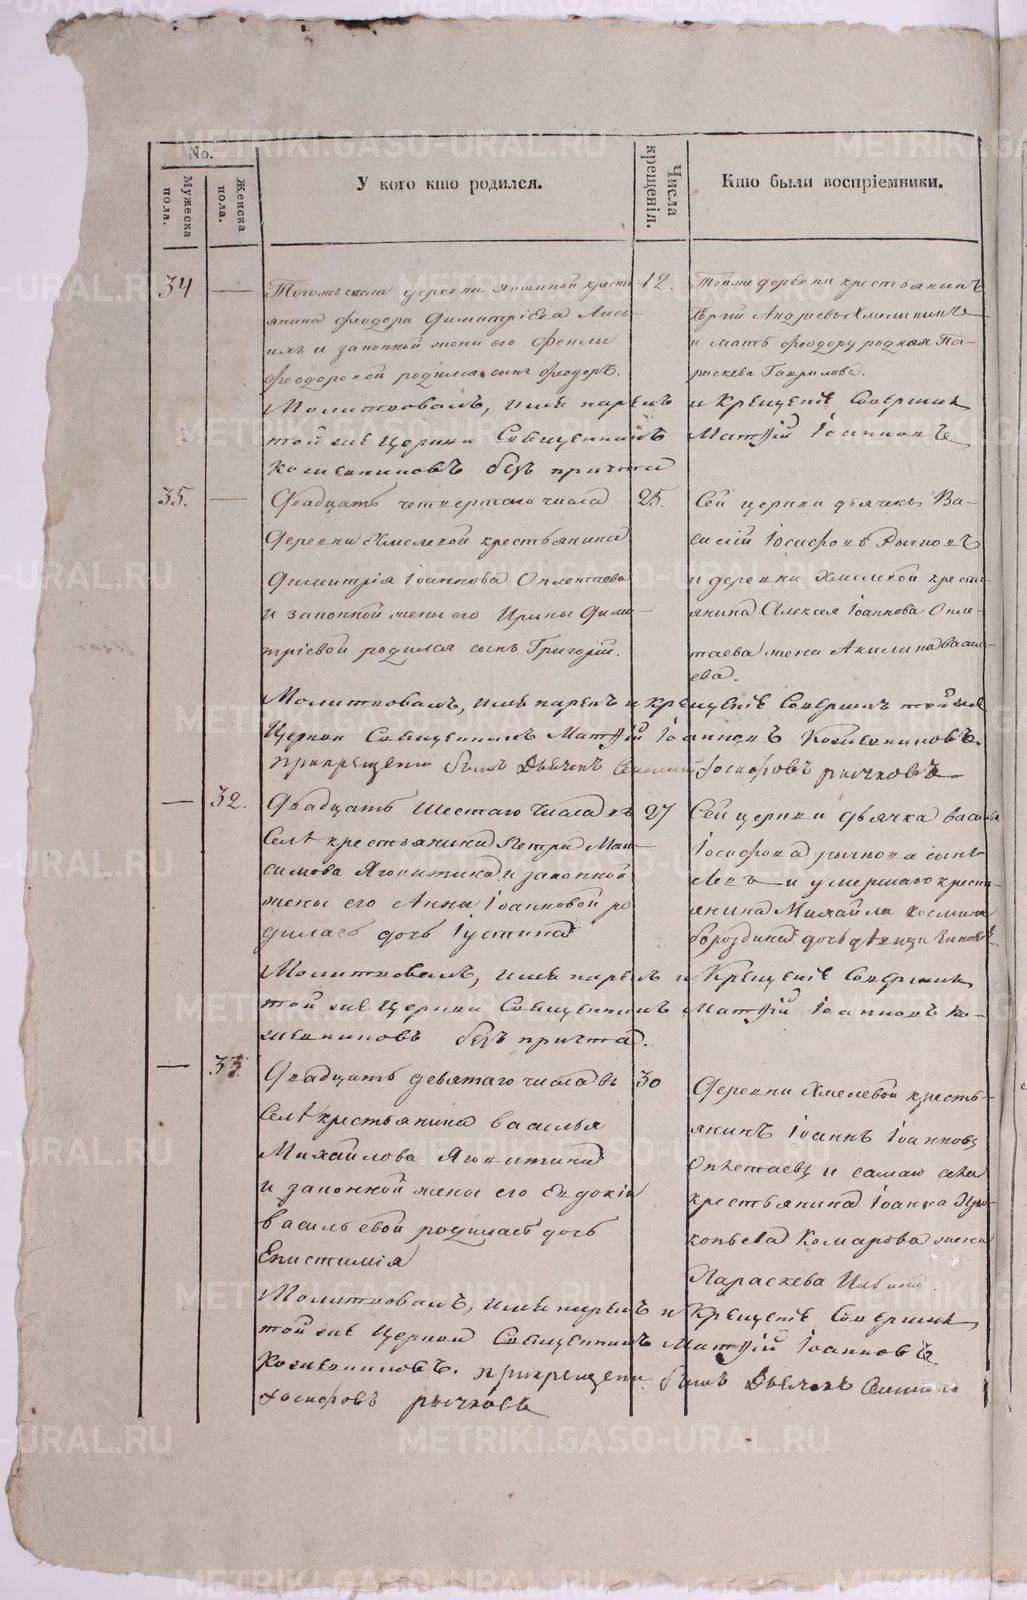 No.
Мужеска пола.
Женска пола.
У кого кто родился.
Числа крещенія.
Кто были воспріемники.
34 — Тогожъ числа деревни крестьянина Феодора Димитріева
и законной жены его
Феодоровой родился сынъ Феодоръ.
12.
Тойже деревни крестьянинъ
Андреевъ
и мать Феодору родная Параскева Гаврилова.
Молитвовалъ, имя нарекъ и Крещеніе Совершилъ
той же Церкви Священникъ Матфій Іоанновъ
Кожевниковъ безъ причта
35. — Двадцать четвертаго числа
деревни Хмелевой крестьянина
Димитрія Іоаннова Оплетаева
и законной жены его Ирины Дими-
тріевой родился сынъ Григорій.
25.
Сей церкви дьячекъ Ва-
силій Іосифовъ Рычковъ
и деревни Хмелевой крестья-
янина Алексея Іоаннова Опле-
таева жена Акилина Василь-
ева.
Молитвовалъ, имя нарекъ и Крещеніе Совершилъ той же
Церкви Священникъ Матфій Іоанновъ Кожевниковъ.
при крещеніи былъ Дьячекъ Іосифовъ рычковъ
— 32. Двадцать шестаго числа въ
селѣ крестьянина Петра Мак-
симова Яговитина и законной
жены его Анны Іоанновой ро
дилась дочь Іустина
27
Сей церкви дьячка Василья
Іосифова рычкова сынъ
Левъ и умершаго кресть-
янина Михайла Космина
бороздина дочь девица
Молитвовалъ, имя нарекъ и Крещеніе Совершилъ
той же Церкви Священникъ Матфій Іоанновъ Ко-
жевниковъ безъ причта.
— 33. Двадцать девятаго числа въ
селѣ крестьянина Василья
Михайлова Яговитина
и законной жены его Евдокіи
Васильевой родилась дочь
Епистимія
30
Деревни Хмелевой кресть-
янинъ Іоаннъ Іоанновъ
Оплетаевъ и самаго села
крестьянина Іоанна Про-
копьева Комарова жена
Параскева Ильина
Молитвовалъ, имя нарекъ и Крещеніе Совершилъ
той же Церкви Священникъ Матфій Іоанновъ
Кожевниковъ. при крещеніи былъ Дьячекъ
Іосифовъ рычковъ
METRIKI.GASO-URAL.RU